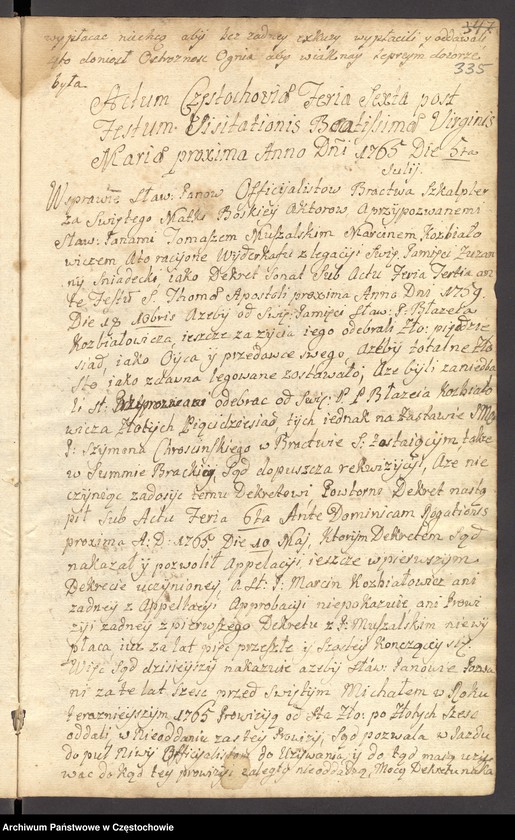 347
wypłacac niechcą aby bez zadney exkuzy wypłacili y oddawali
ato doniosł Ostroznosc Ognia aby wiakknay lepszym dozorze
była
335
Actum Częstochoviæ Feria Sexta post
Festum Visitationis Beatissimæ Virginis
Mariæ proxima Anno Dni 1765 Die 5ta
Julij.
W sprawie Sław: Panow Officijalistow Bractwa Szkalpler
za Swiętego Matki Boskiey Aktorow, a przypozwanemi
Sław: Panami Tomaszem Muszalskim Marcinem Kozbiało
wiczem Ato racyone Wyderkafu z legacyi Swię: Pamięci Zuzan
ny Sniadecki iako Dekret Sonat Sub Actu Feria Tertia an
te Festũ S: Thomæ Apostoli proxima Anno Dni 1759.
Die 18 10bris Azeby od Swię: Pamięci Sław: P: Błazeia
Kozbiałowicza, ieszcze za zycia iego odebrali Zło: pięcdzie
siąd, iako Oyca y przedawce swego, Azeby totalne Zło
Sto, iako zdawna legowane zostawało, Aze byli zaniedba
li St: Przypozwani odebrac od Swię: P: P: Błazeia Kozbiało
wicza Złotych Pięcidziesiąd, tych iednak na Zastawie
P: Szymona Chroscinskiego w Bractwie S: Zostaiącym, także
w Summie Brackiey, Sąd dopuszcza rekwizycyi, Aze nie
czyniąc zadosyc temu Dekretowi Powtorny Dekret nastą
pił Sub Actu Feria 6ta Ante Dominicam Rogationis
proxima A: D: 1765 Die 10 Maj, Ktorym Dekretem Sąd
nakazał y pozwolił Appelacyi, ieszcze w pierwszym
Dekrecie uczynioney, A St: P: Marcin Kozbiałowicz ani
zadney z Appellacyi Approbacyi niepokazuie, ani Prowi
zyi zadney z pierwszego Dekretu z P: Muszalskim nie wy
płaca iuz za lat pięc przeszłe y Szostey Konczącey się.
Więc Sąd dzisieyszy nakazuie azeby Sław: Panowie Pozwa
ni za te lat Szesc przed Swiętym Michałem w Roku
teraznieyszym 1765 Prowizyą od Sta Zło: po Złotych Szesc
oddali, w Nieoddaniu zas tey Prowizy, Sąd pozwala w Jazdu
do pul Niwy Officijalistow do Uzywania, y do tąd maią uzy
wac do kąd tey prowizyi zaległey nieoddadzą, Mocą Dekretu naka
Archiwum Państwowe w Częstochowie